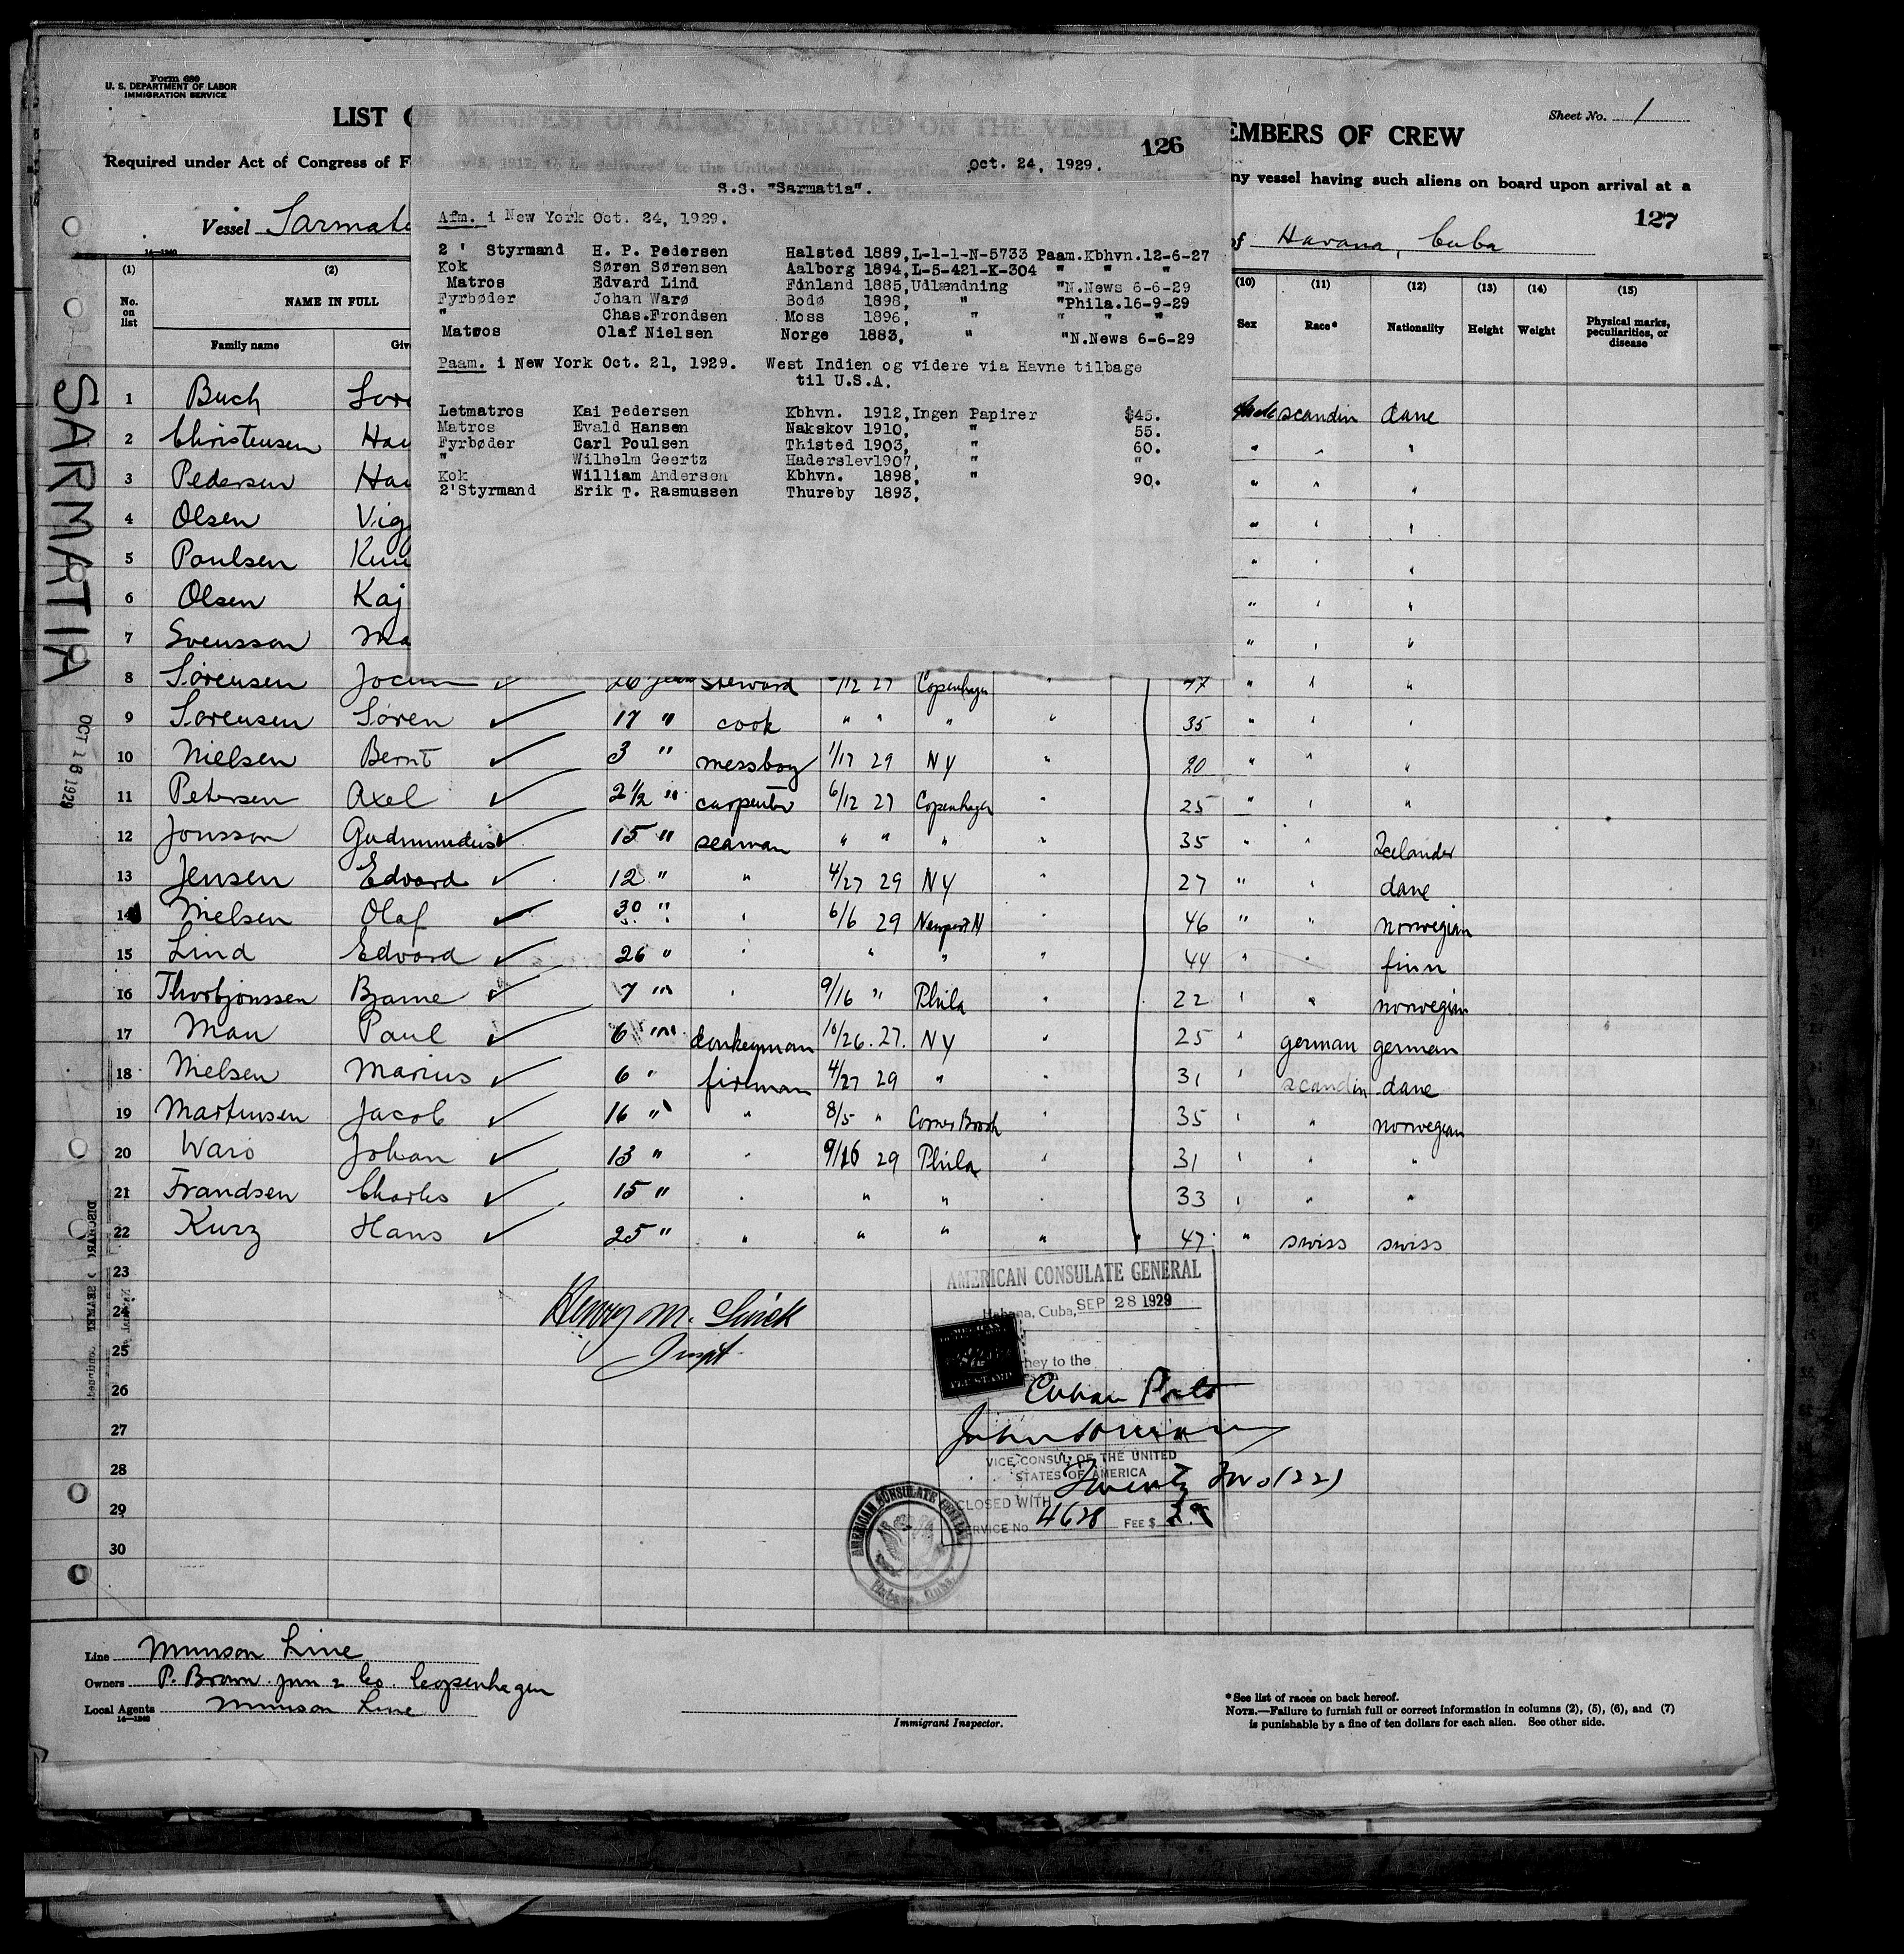 Form 680
U. S. DEPARTMENT OF LABOR
IMMIGRATION SERVICE
Sheet No. 1
LIST OF MANIFEST OF ALIENS EMPLOYED ON THE VESSEL AS MEMBERS OF CREW
126
Required under Act of Congress of February 5, 1917, to be delivered to the United States Immigration
ny vessel having such aliens on board upon arrival at a
Oct. 24, 1929.
S.S. "Sarmatia".
Vessel Sarmat
of Havana, Cuba
127
Afm. i New York Oct. 24, 1929.
2 ' Styrmand H. P. Pedersen Halsted 1889, L-1-1-N-5733 Paam.Kbhvn.12-6-27
Kok Søren Sørensen Aalborg 1894, L-5-421-K-304 " " "
Matros Edvard Lind Finland 1885, Udlændning "N.News 6-6-29
Fyrbøder Johan Warø Bodø 1898, " "Phila.16-9-29
" Chas.Frondsen Moss 1896, " " " "
Matros Olaf Nielsen Norge 1883, " "N.News 6-6-29
Paam. i New York Oct. 21, 1929. West Indien og videre via Havne tilbage
til U.S.A.
Letmatros Kai Pedersen Kbhvn. 1912, Ingen Papirer $45.
Matros Evald Hansen Nakskov 1910, " 55.
Fyrbøder Carl Poulsen Thisted 1903, " 60.
" Wilhelm Geertz Haderslev1907, " "
Kok William Anderson Kbhvn. 1898, " 90.
2'Styrmand Erik T. Rasmussen Thureby 1893,
14—1240
(1) (2) (10) (11) (12) (13) (14) (15)
No. on list NAME IN FULL Sex Race* Nationality Height Weight Physical marks, peculiarities, or disease
Family name Giv
SARMATIA
OCT 16 1929
1 Buch Sore male scandin dane
2 Christensen Han " " "
3 Pedersen Han " " "
4 Olsen Vig " " "
5 Poulsen Knu " " "
6 Olsen Kaj " " "
7 Svensson Ma " " "
8 Sorensen steward 6/12 27 Copenhagen " 47 " " "
9 Sorensen Soren 17 " cook " " " " 35 " " "
10 Nielsen Bernt 3 " messboy 1/17 29 NY " 20 " " "
11 Petersen Axel 2 1/2 " carpenter 6/12 27 Copenhagen " 25 " " "
12 Jonsson Gudmundus 15 " seaman " " " " 35 " " Icelander
13 Jensen Edvard 12 " " 4/27 29 NY " 27 " " dane
14 Nielsen Olaf 30 " " 6/6 29 Newport N " 46 " " norwegian
15 Lind Edvard 26 " " " " " 44 " " finn
16 Thorbjonssen Bjarne 7 " " 9/16 " Phila " 22 " " norwegian
17 Man Paul 6 " donkeyman 10/26. 27. NY " 25 " german german
18 Nielsen Marius 6 " fireman 4/27 29 " " 31 " scandin dane
19 Martinsen Jacob 16 " " 8/5 " Corner Brook " 35 " " norwegian
20 Waro Johan 13 " " 9/16 29 Phila " 31 " " "
21 Frandsen Charles 15 " " " " " 33 " " "
22 Kurz Hans 25 " " " " " 47 " swiss swiss
23
24
25
26
27
28
29
30
Henry M.
Inspt.
AMERICAN CONSULATE GENERAL
Habana, Cuba, SEP 28 1929
ney to the
Cuban Ports
VICE CONSUL OF THE UNITED
STATES OF AMERICA
Twenty Two (22)
CLOSED WITH
SERVICE No. 4628 FEE $
AMERICAN CONSULATE GENERAL
Habana, Cuba.
Line Munson Line
Owners P. Brown jun & Co. Copenhagen
Local Agents Munson Line
14—1240
Immigrant Inspector.
*See list of races on back hereof.
NOTE.—Failure to furnish full or correct information in columns (2), (5), (6), and (7)
is punishable by a fine of ten dollars for each alien. See other side.